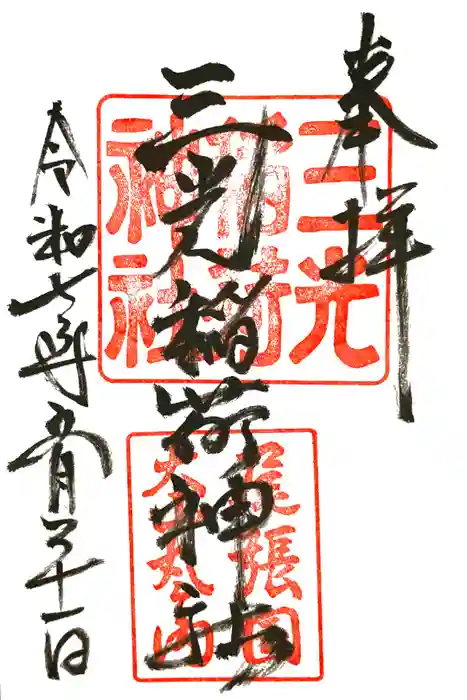 奉拝
三光稲荷神社
三光稲荷神社
尾張国
犬山
令和七年五月三十一日